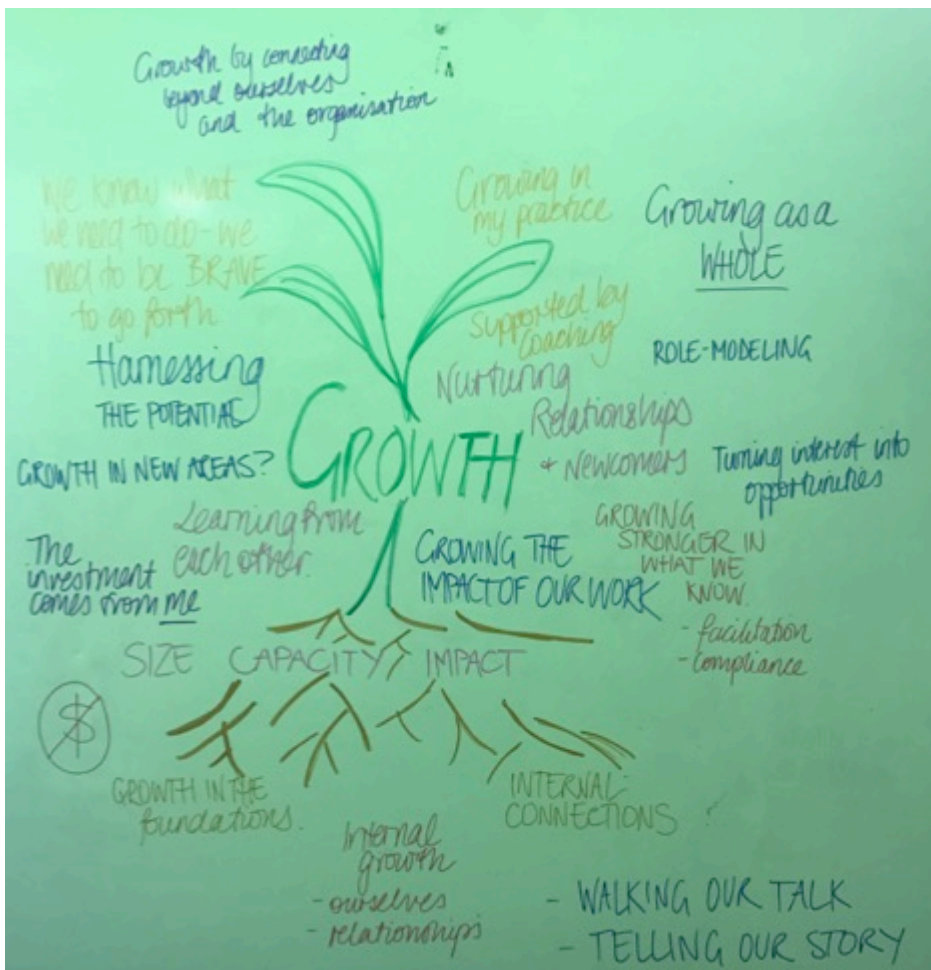 Growth by connecting
beyond ourselves
and the organisation
We know what
we need to do - we
need to be BRAVE
to go forth
Growing in
my practice
Supported by
coaching
Growing as a
WHOLE
Harnessing
THE POTENTIAL
ROLE-MODELING
Nurturing
Relationships
+ Newcomers
GROWTH
GROWTH IN NEW AREAS?
Turning interest into
opportunities
Learning from
each other.
The
investment
comes from me
GROWING THE
IMPACT OF OUR WORK
GROWING
STRONGER IN
WHAT WE
KNOW.
- facilitation
- compliance
SIZE CAPACITY IMPACT
$
GROWTH IN THE
foundations.
INTERNAL
CONNECTIONS
Internal
growth
- ourselves
- relationships
- WALKING OUR TALK
- TELLING OUR STORY